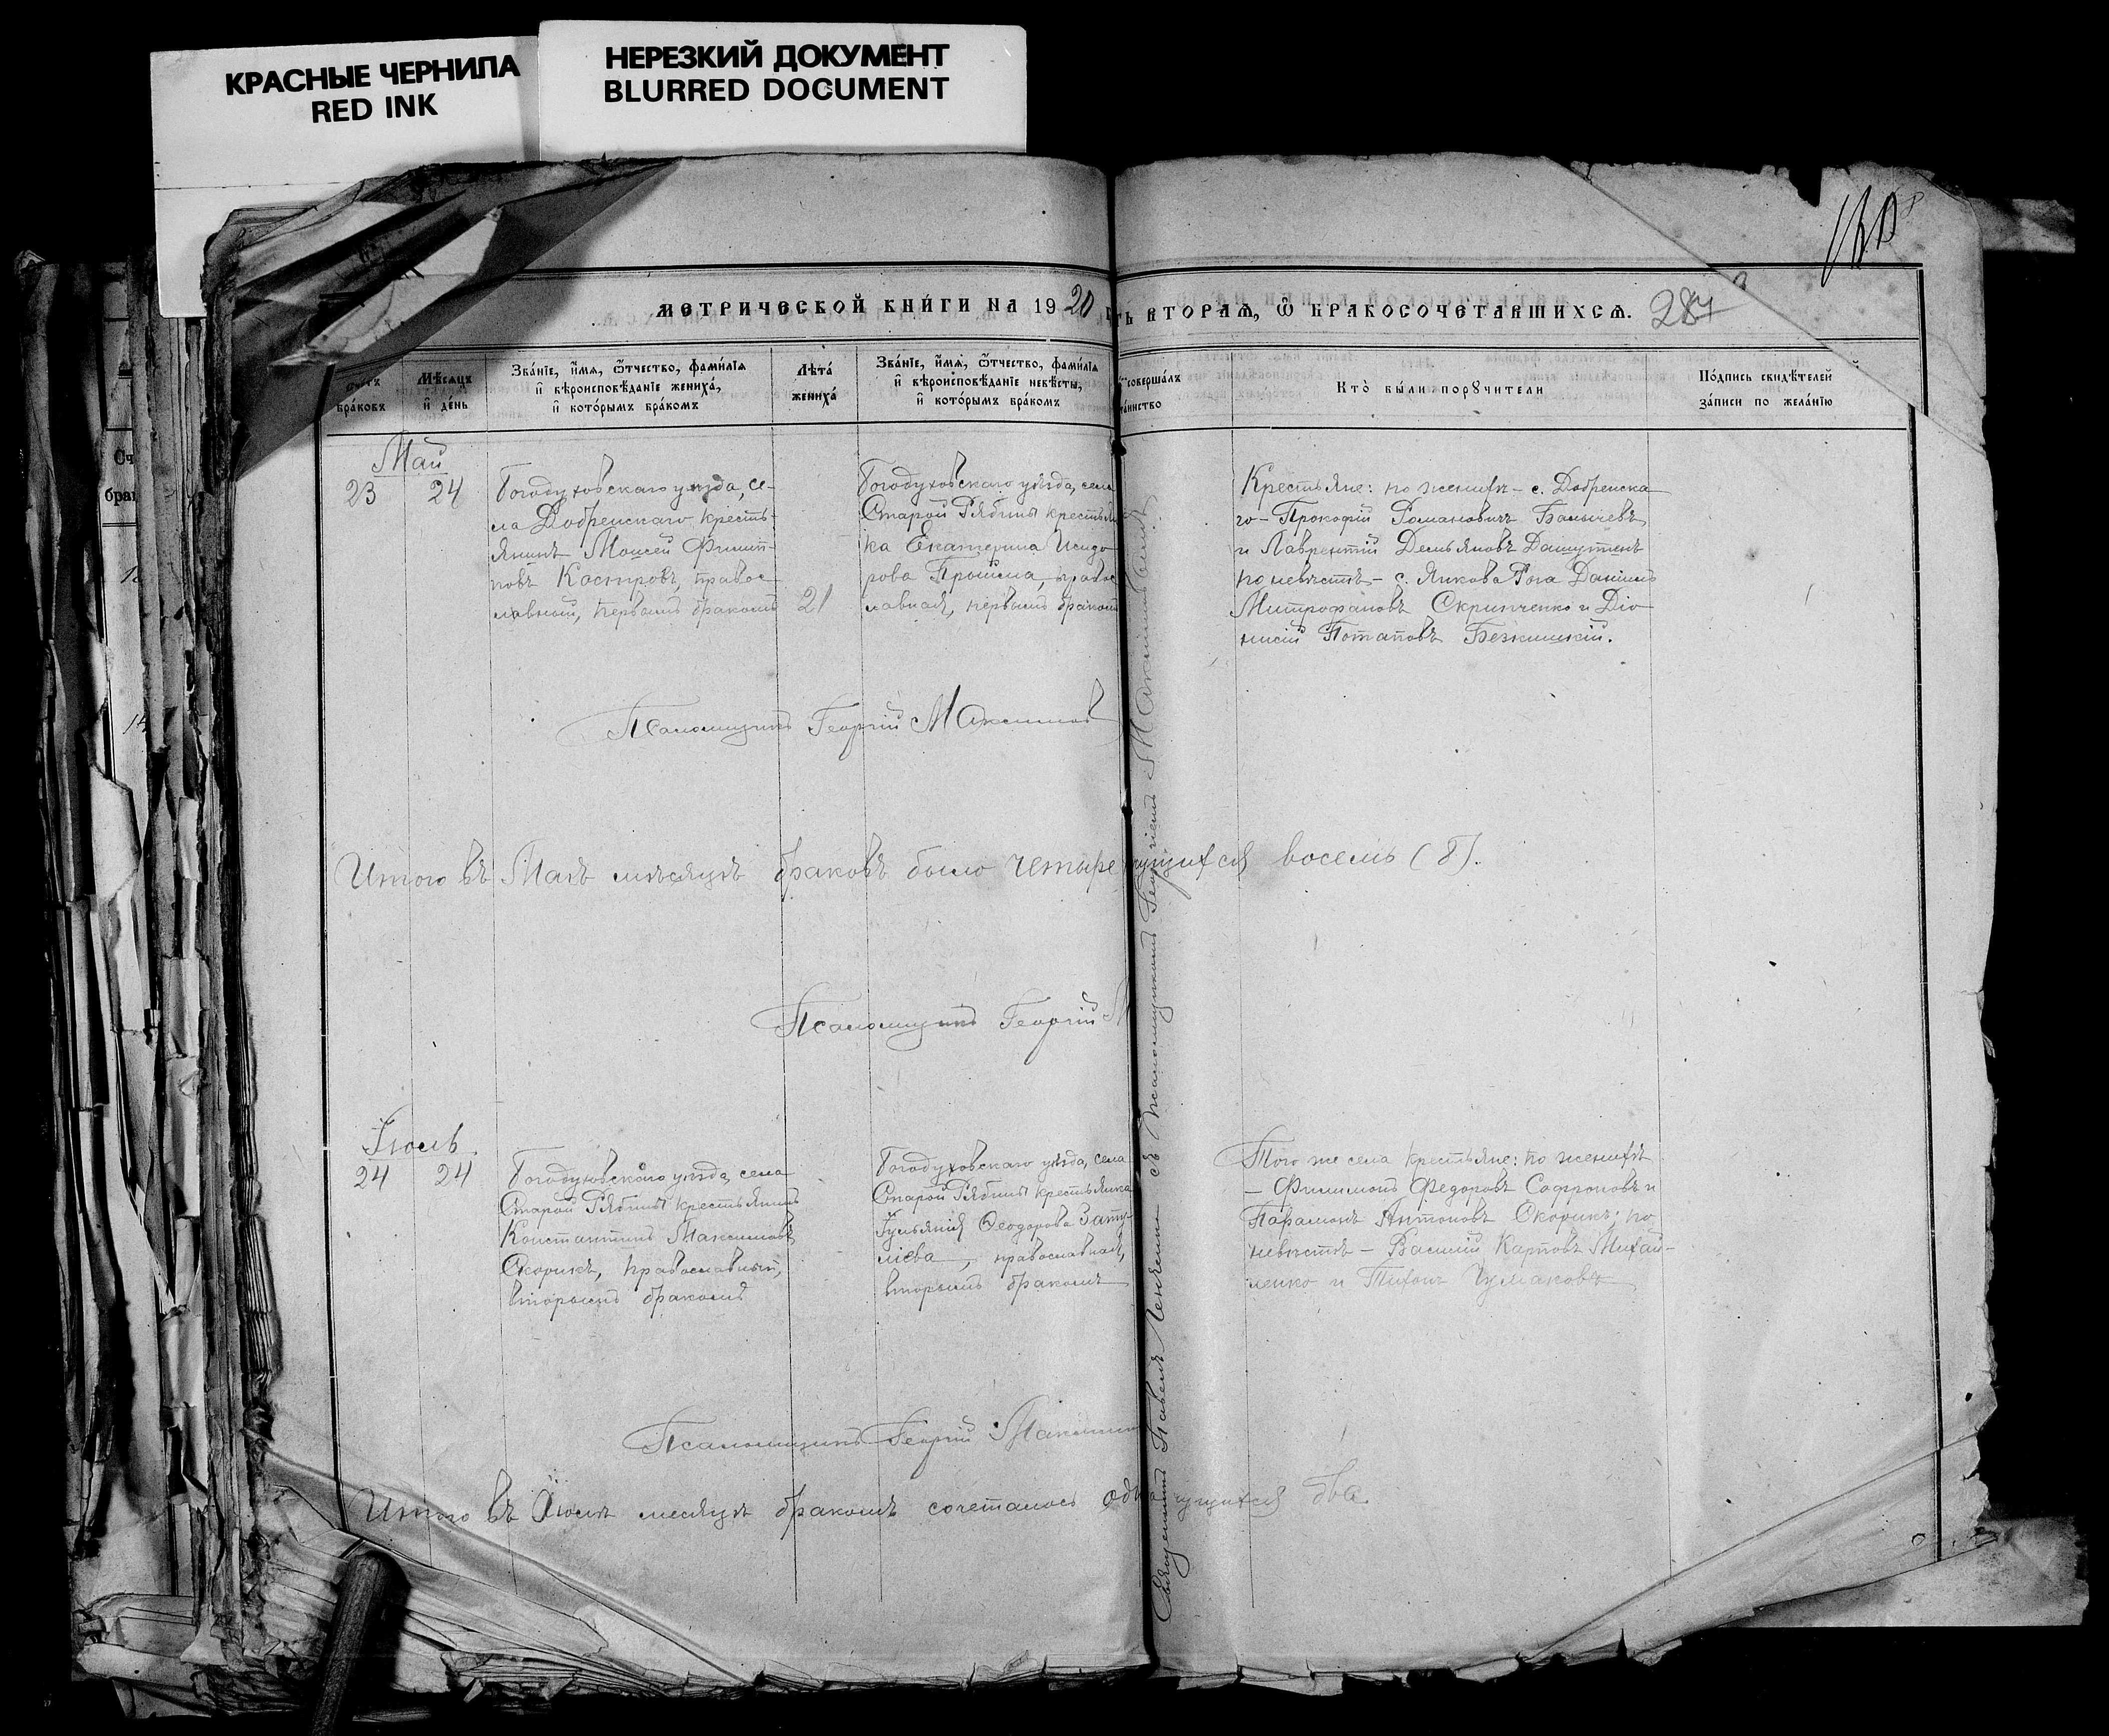 КРАСНЫЕ ЧЕРНИЛА
RED INK
НЕРЕЗКИЙ ДОКУМЕНТ
BLURRED DOCUMENT
МЕТРИЧЕСКОЙ КНИ́ГИ НА 1920
ТЬ ВТОРАѦ, Ѿ БРАКОСОЧЕТАВШИХСѦ. 287
бра́ковъ
Мѣсѧцъ
и҆ де́нь
Зва́нїе, и҆́мѧ, ѻ҆́тчество, фами́лїѧ
и҆ вѣроисповѣ́данїе жениха̀,
и҆ кото́рымъ бра́комъ
Лѣта̀
жениха̀
Зва́нїе, и҆́мѧ, ѻ҆́тчество, фами́лїѧ
и҆ вѣроисповѣ́данїе невѣ́сты,
и҆ кото́рымъ бра́комъ
соверша́лъ
та́инство
Кто̀ бы́ли порꙋчители
По́дпись свидѣ́телей
за́писи по жела́нїю
Май
23
24
Богодуховскаго уѣзда, се-
ла Добренскаго кресть-
янинъ Моисей Филип-
повъ Костровъ, правос-
лавный, первымъ бракомъ
21
Богодуховскаго уѣзда, села
Старой Рябины крестьян
ка Екатерина Исидо-
рова, правос
лавная, первымъ бракомъ
Крестьяне: по женихѣ – с. Добренска
го – Прокофій Романовичъ
и Лаврентій Демьяновъ
по невѣстѣ – с. Янкова Рога Даніилъ
Митрофановъ Скрипченко и Діо
нисій Потаповъ
Псаломщикъ Георгій Максимов
Итого въ Маѣ мѣсяцѣ браковъ было четыре
щихся восемь (8).
Псаломщикъ Георгій М
Іюль
24
24
Богодуховскаго уѣзда, села
Старой Рябины крестьянинъ
Константинъ Максимовъ
Скорикъ, православный,
вторымъ бракомъ
Богодуховскаго уѣзда, села
Старой Рябины крестьянка
Іуліанія Ѳеодорова
православная,
вторымъ бракомъ
Того же села крестьяне: по женихѣ
– Филимонъ Федоровъ Софроновъ и
Парамонъ Антоновъ Скорикъ; по
невѣстѣ – Василій Карповъ Михай-
ленко и Тихонъ Чумаковъ
Псаломщикъ Георгій Максимов
Итого въ Іюлѣ месяцѣ бракомъ сочеталось
щихся два.
Священникъ Павелъ съ псаломщикомъ Георгіемъ Максимовымъ